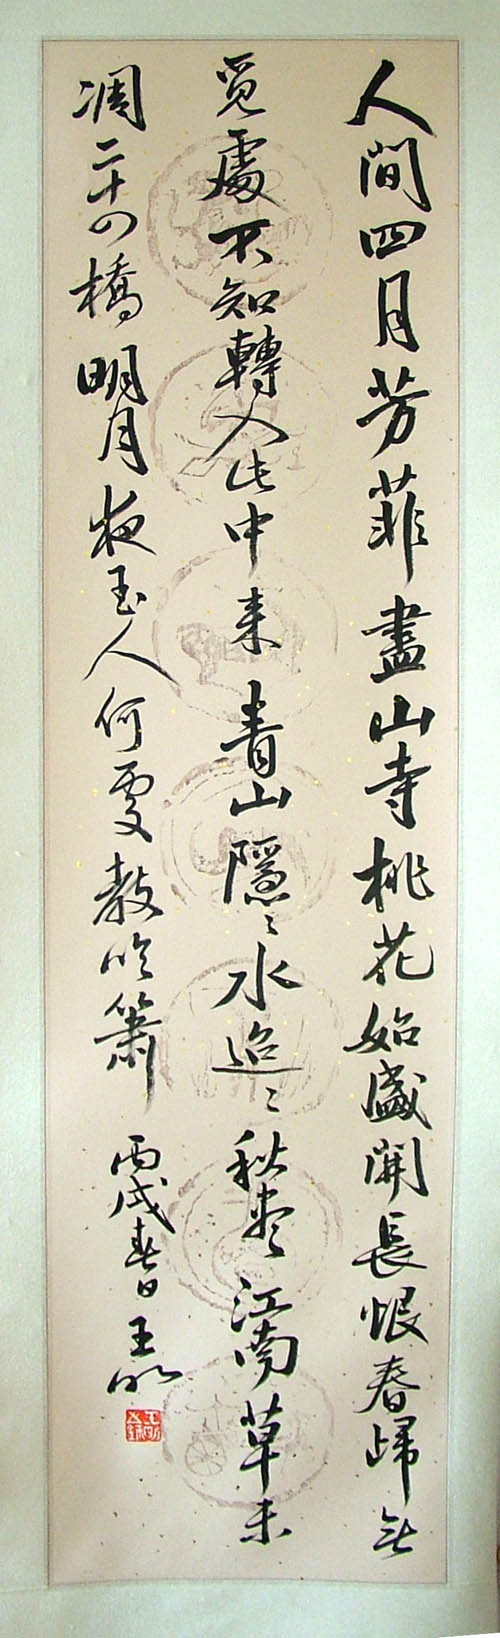 人間四月芳菲盡山寺桃花始盛開長恨春歸無
覓處不知轉入此中来青山隱〻水迢〻秋盡江南草未
凋二十四橋明月夜玉人何處教吹簫
丙戌春日王